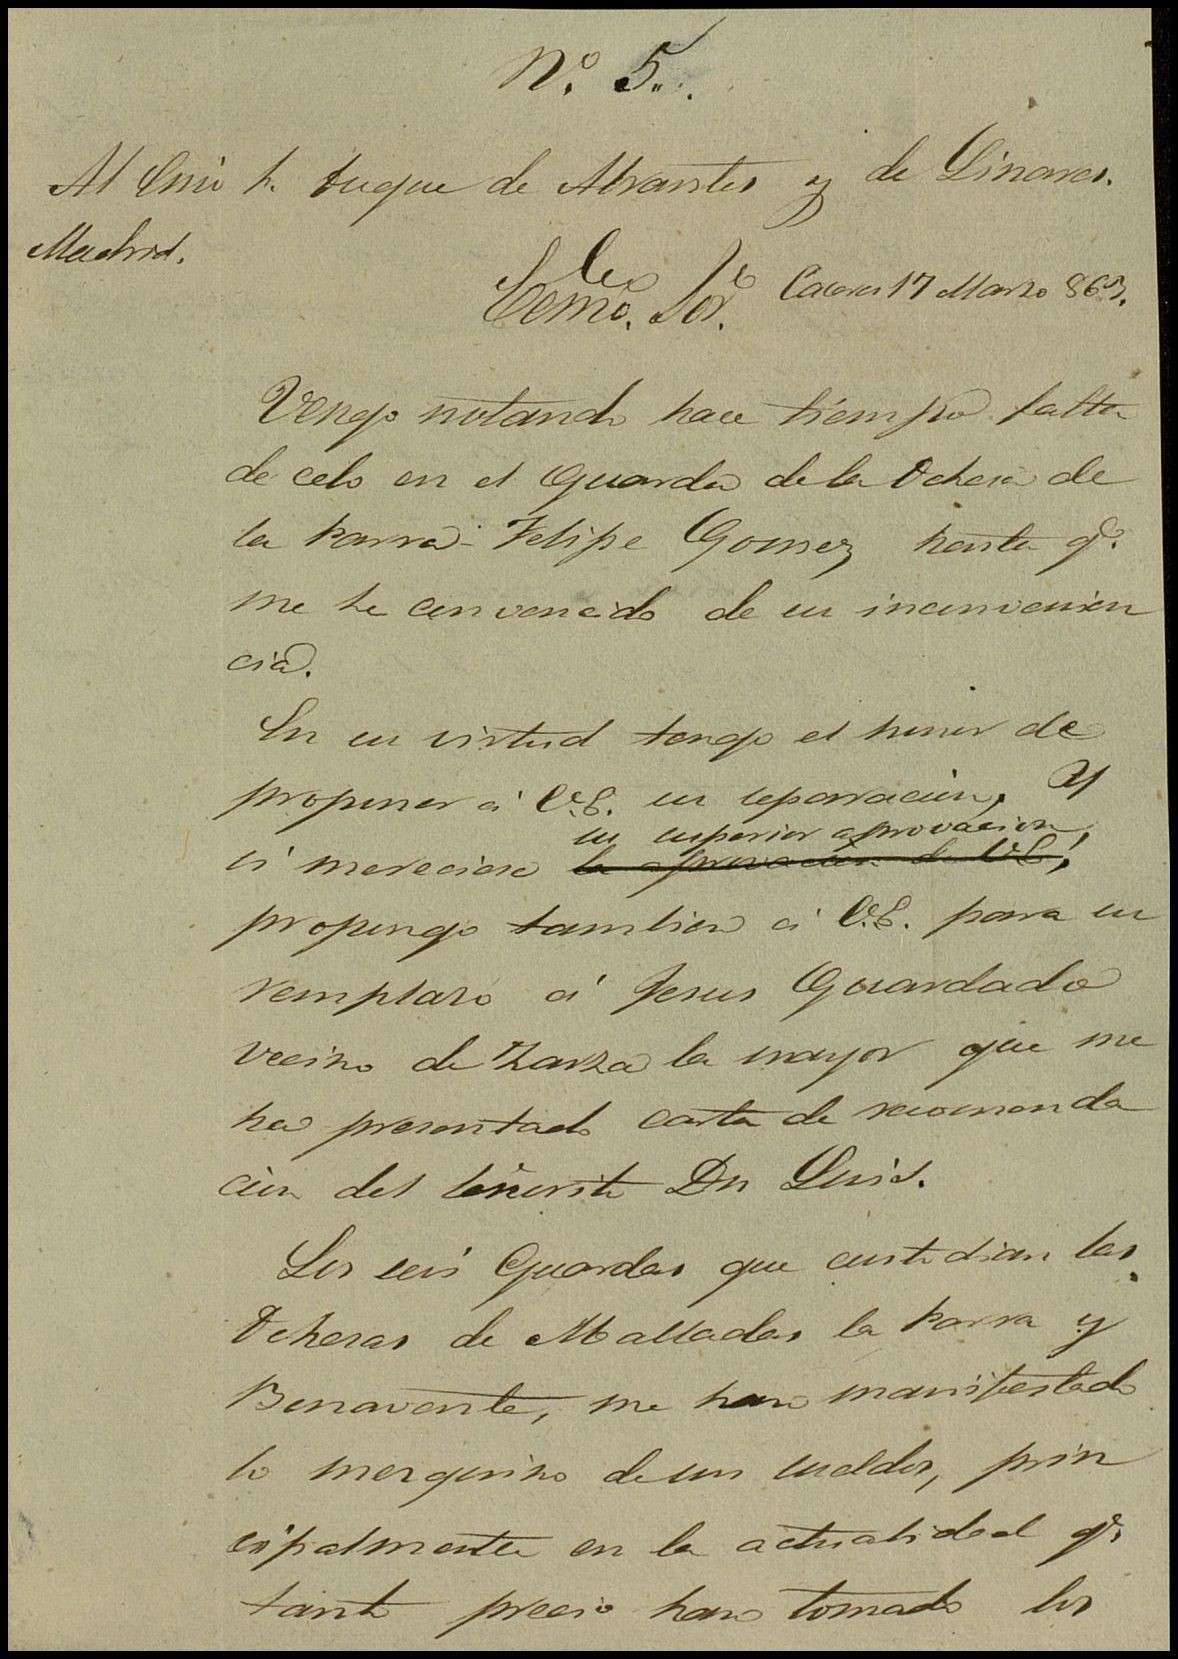 Nº. 5.
Al Exmo Sr. Duque de Abrantes y de Linares.
Madrid.
Exmo. Sor. Caceres 17 Marzo 863.
Vengo notando hace tiempo falta
de celo en el Guarda de la Dehesa de
la Parra Felipe Gomez hasta qe.
me he convencido de su inconvenien
cia.
En su virtud tengo el honor de
proponer á V.E. su separacion, y
su superior aprovacion,
si mereciese la aprovacion de V.E,
propongo tambien á V.E. para su
remplazo á Jesus Guardado
vecino de Zarza la mayor que me
ha presentado carta de recomenda
cion del Señorito Dn Luis.
Los seis Guardas que custodian las
Dehesas de Malladas la Parra y
Benavente, me han manifestado
lo mezquino de sus sueldos, prin
cipalmente en la actualidad qe.
tanto precio han tomado los